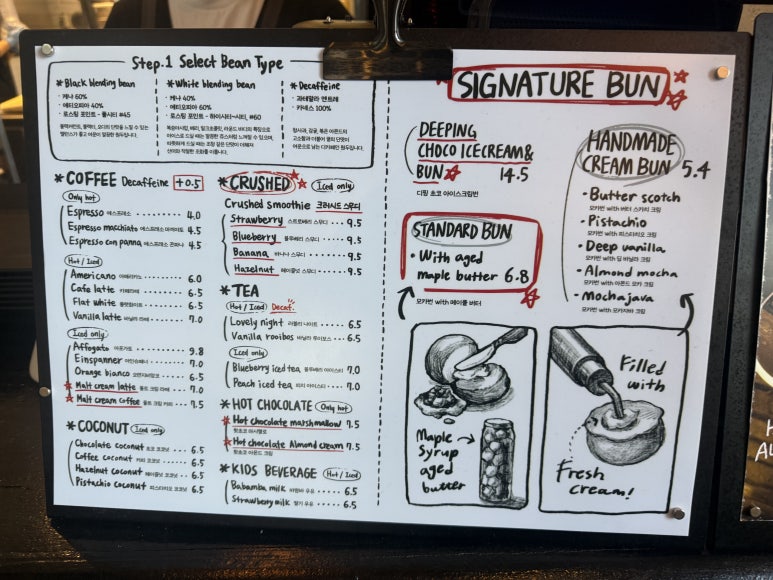 Step.1 Select Bean Type
*Black blending bean
· 케냐 60%
· 에티오피아 40%
· 로스팅 포인트 - 풀시티 #45
*White blending bean
· 케냐 40%
· 에티오피아 60%
· 로스팅 포인트 - 하이시티~시티, #60
*Decaffeine
· 카네스 100%
*COFFEE Decaffeine +0.5
Only hot
Espresso 에스프레소 4.0
Espresso macchiato 에스프레소 마끼아또 4.5
Espresso con panna 에스프레소 콘파나 4.5
Hot / Iced
Americano 아메리카노 6.0
Cafe latte 카페라떼 6.5
Flat white 플랫화이트 6.5
Vanilla latte 바닐라 라떼 7.0
Iced only
Affogato 아포가토 9.8
Einspanner 아인슈페너 7.0
Orange bianco 오렌지비앙코 6.5
Malt cream latte 몰트 크림 라떼 7.0
Malt cream coffee 몰트 크림 커피 7.5
*COCONUT Iced only
Chocolate coconut 초코 코코넛 6.5
Coffee coconut 커피 코코넛 6.5
Hazelnut coconut 헤이즐넛 코코넛 6.5
Pistachio coconut 피스타치오 코코넛 6.5
*CRUSHED Iced only
Crushed smoothie 크러시드 스무디
Strawberry 스트로베리 스무디 9.5
Blueberry 블루베리 스무디 9.5
Banana 바나나 스무디 9.5
Hazelnut 헤이즐넛 스무디 9.5
*TEA
Hot / Iced Decaf.
Lovely night 러블리 나이트 6.5
Vanilla rooibos 바닐라 루이보스 6.5
Iced only
Blueberry iced tea 블루베리 아이스티 7.0
Peach iced tea 피치 아이스티 7.0
*HOT CHOCOLATE Only hot
Hot chocolate marshmallow 7.5
핫초코 마시멜로
Hot chocolate Almond cream 7.5
핫초코 아몬드 크림
*KIDS BEVERAGE Hot / Iced
Babamba milk 바밤바 우유 6.5
Strawberry milk 딸기 우유 6.5
SIGNATURE BUN
DEEPING
CHOCO ICECREAM &
BUN 14.5
딥핑 초코 아이스크림번
STANDARD BUN
· With aged
maple butter 6.8
모카번 with 메이플 버터
HANDMADE
CREAM BUN 5.4
· Butter scotch
모카번 with 버터 스카치 크림
· Pistachio
모카번 with 피스타치오 크림
· Deep vanilla
모카번 with 딥 바닐라 크림
· Almond mocha
모카번 with 아몬드 모카 크림
· Mochajava
모카번 with 모카자바 크림
Maple
Syrup
aged
butter
Filled
with
Fresh
cream!